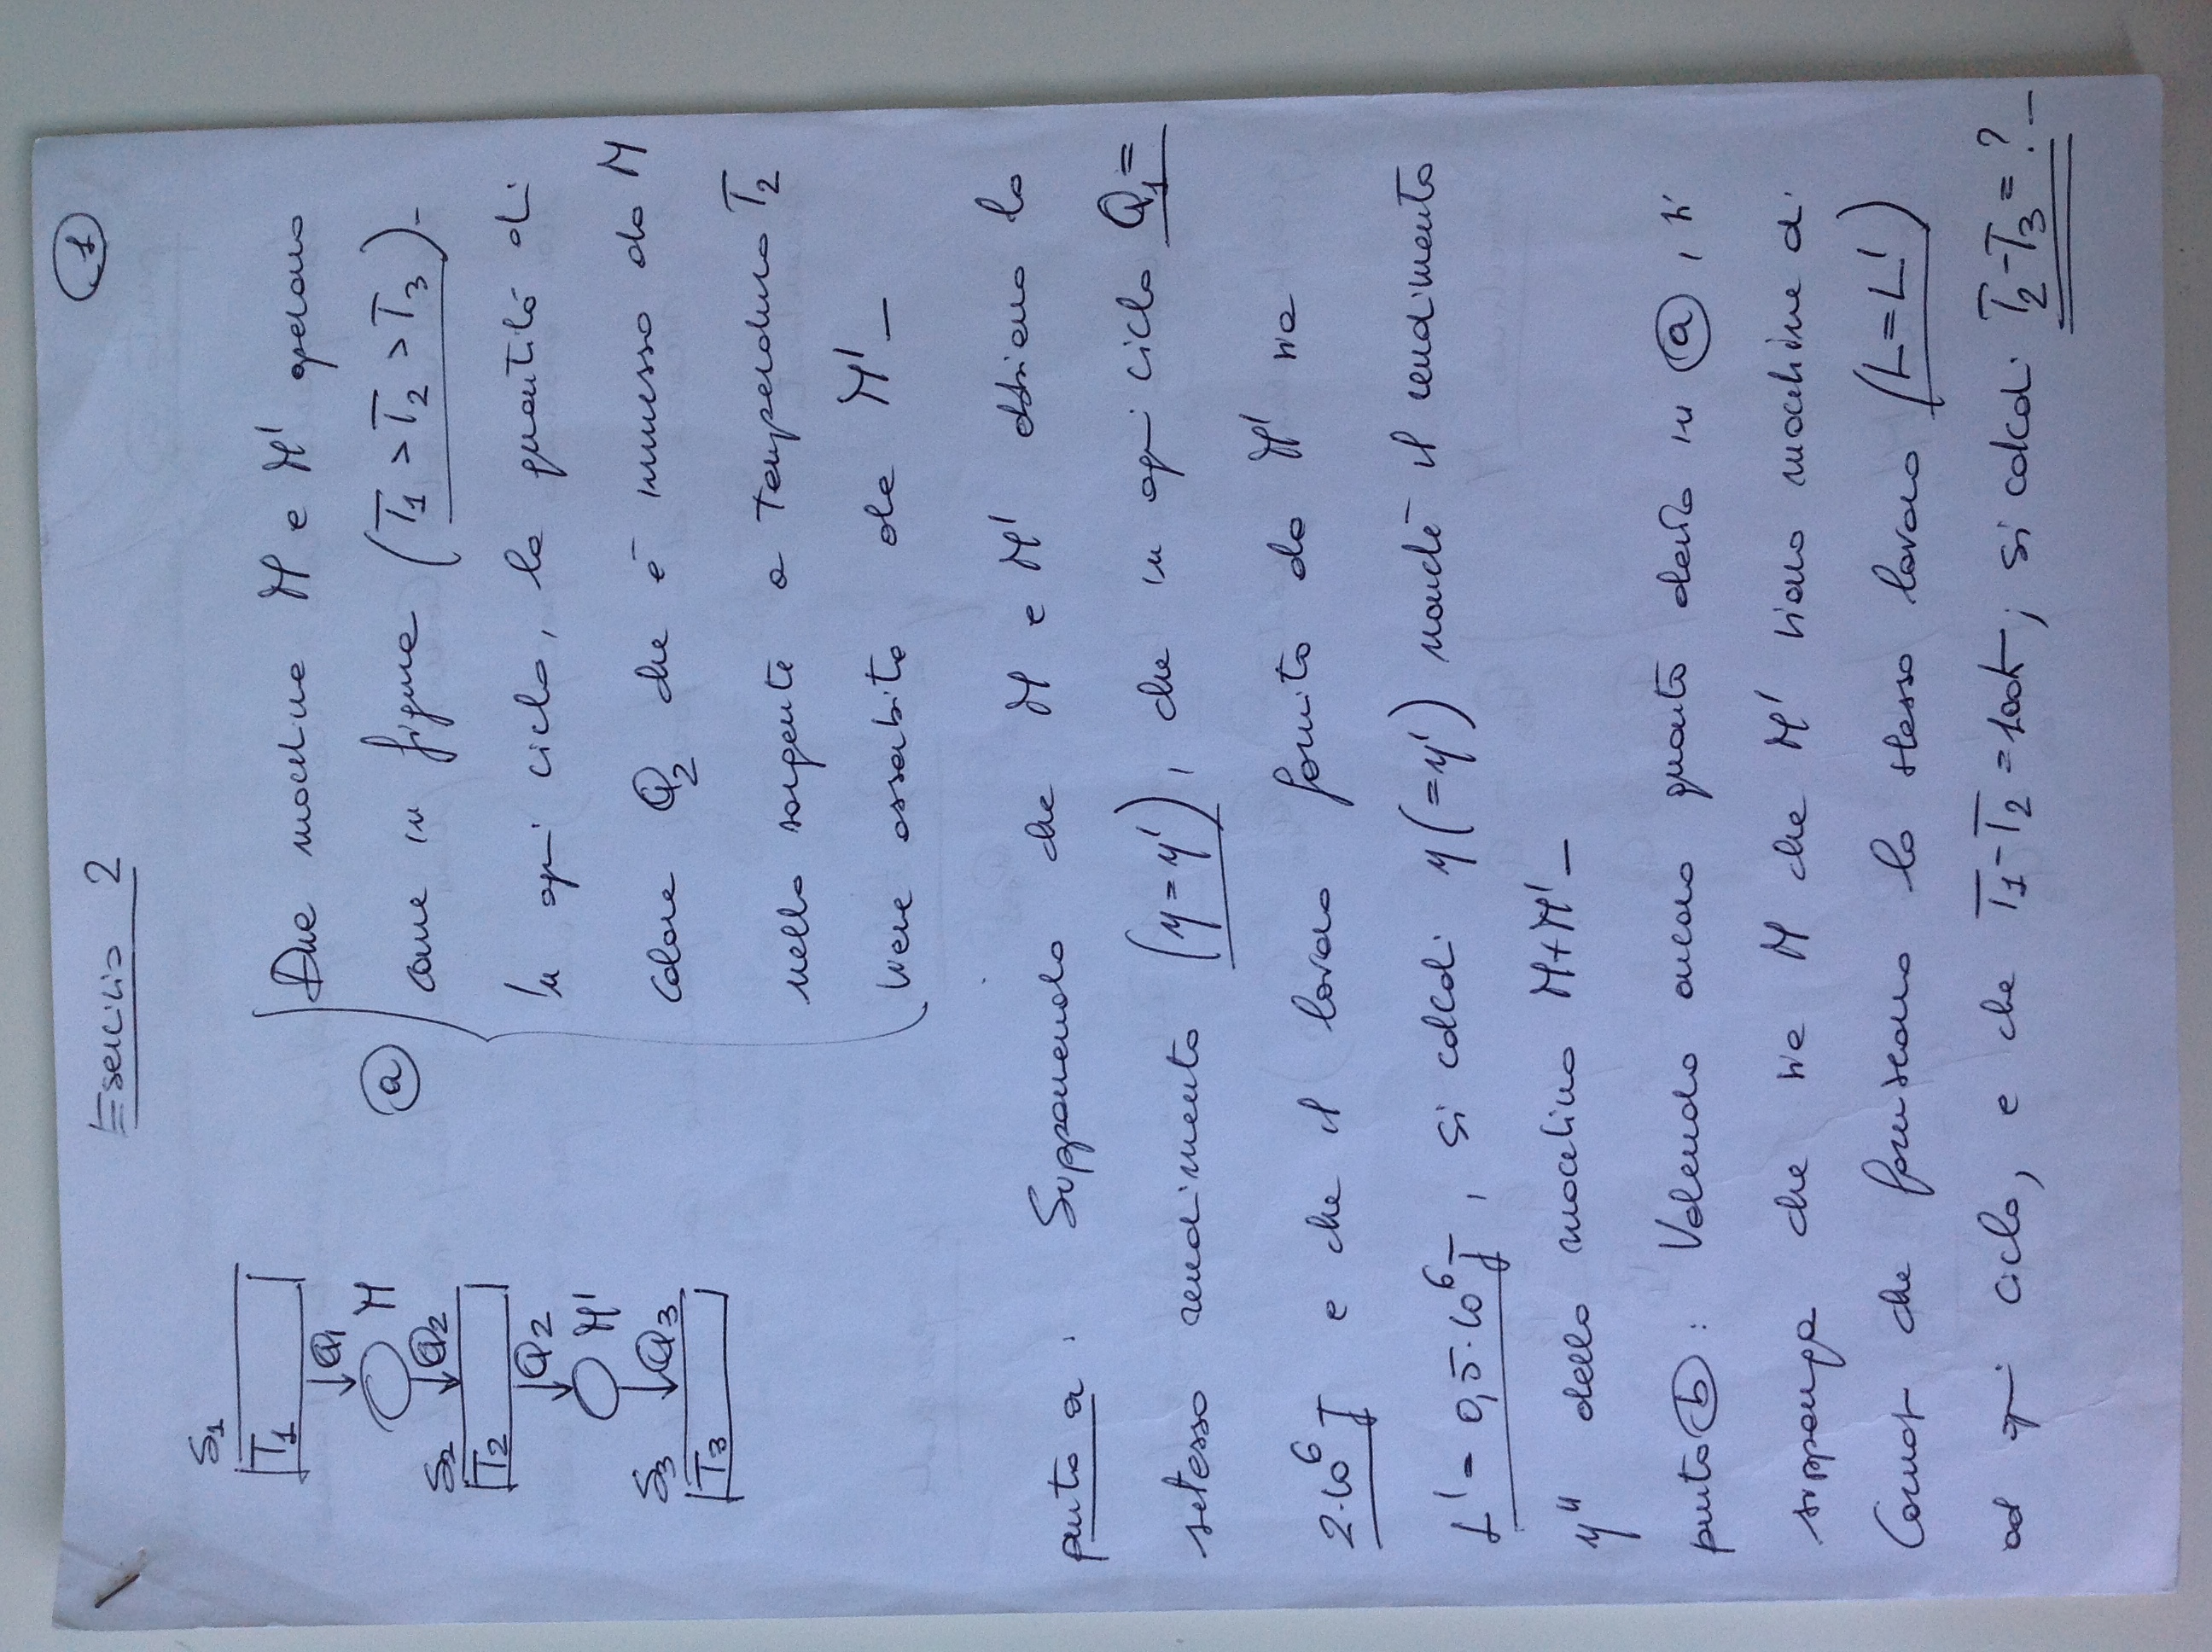 1
Esercizio 2
S1
T1
Q1
M
Q2
S2
T2
Q2
M'
S3
Q3
T3
a
Due macchine M e M' operano
come in figura (T1 > T2 > T3)-
In ogni ciclo, la quantità di
calore Q2 che è immesso da M
nella sorgente a temperatura T2
viene assorbita da M' -
punto a : Supponendo che M e M' abbiano lo
stesso rendimento (η = η'), che in ogni ciclo Q1 =
2·10⁶ J e che il lavoro fornito da M' sia
L' = 0,5·10⁶ J, si calcoli η (= η') nonché il rendimento
η'' della macchina M+M' -
punto b : Valendo ancora quanto detto in a , si
supponga che sia M che M' siano macchine di
Carnot che forniscono lo stesso lavoro (L = L')
ad ogni ciclo, e che T1 - T2 = 100K ; si calcoli T2 - T3 = ? -